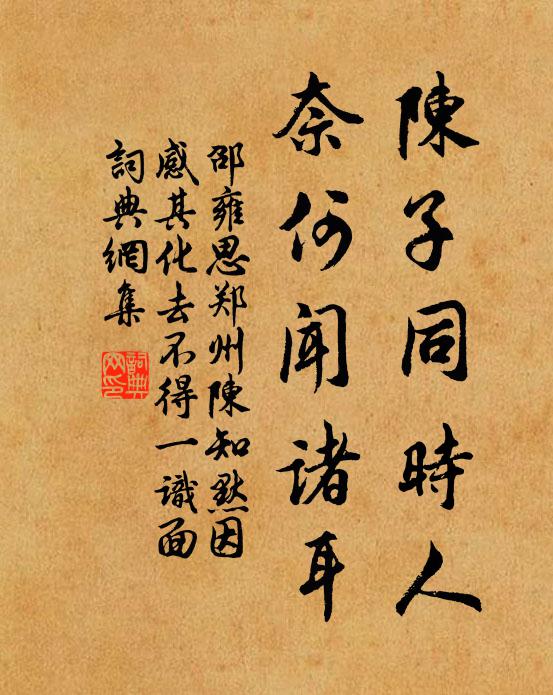 陳子同時人
奈何聞諸耳
邵雍思郑州陳知默因
感其化去不得一識面
詞典網集
詞典網印